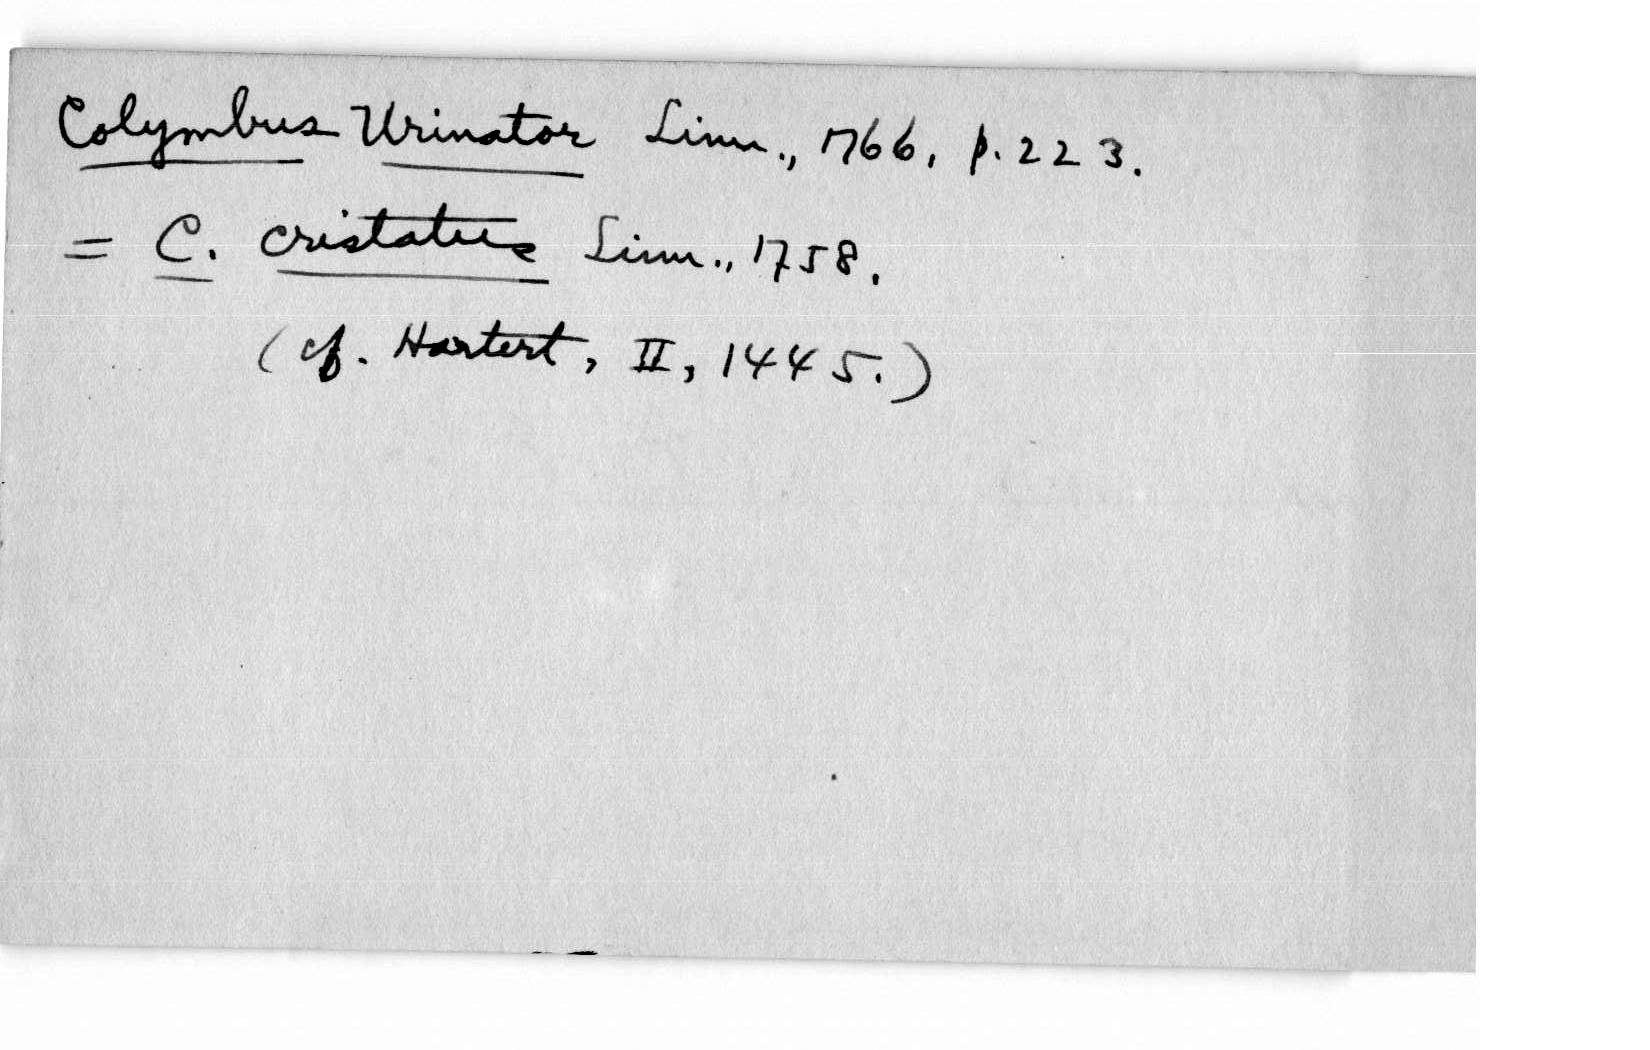 Colymbus Urinator Linn., 1766, p. 223.
= C. cristatus Linn., 1758.
(cf. Hartert, II, 1445.)